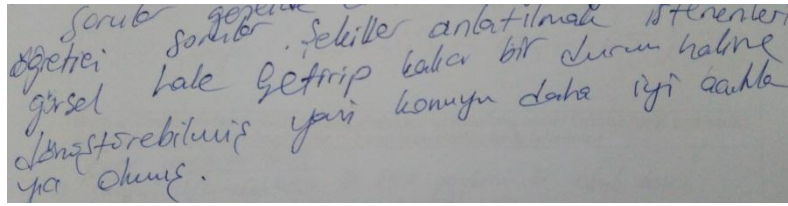 Sorular genelde
öğretici sorular. Şekiller anlatılmak istenenleri
görsel hale getirip kalıcı bir durum haline
dönüştürebilmiş yani konuyu daha iyi açıkla
ya olmuş.